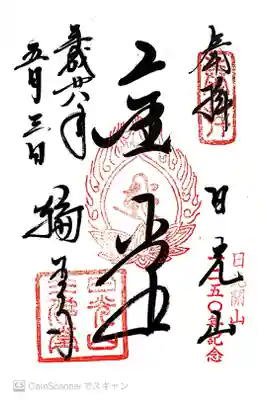 奉拝 日光山
日光開山
一二五〇年記念
金堂
平成廿八年
五月三日
輪王寺
CamScanner でスキャン